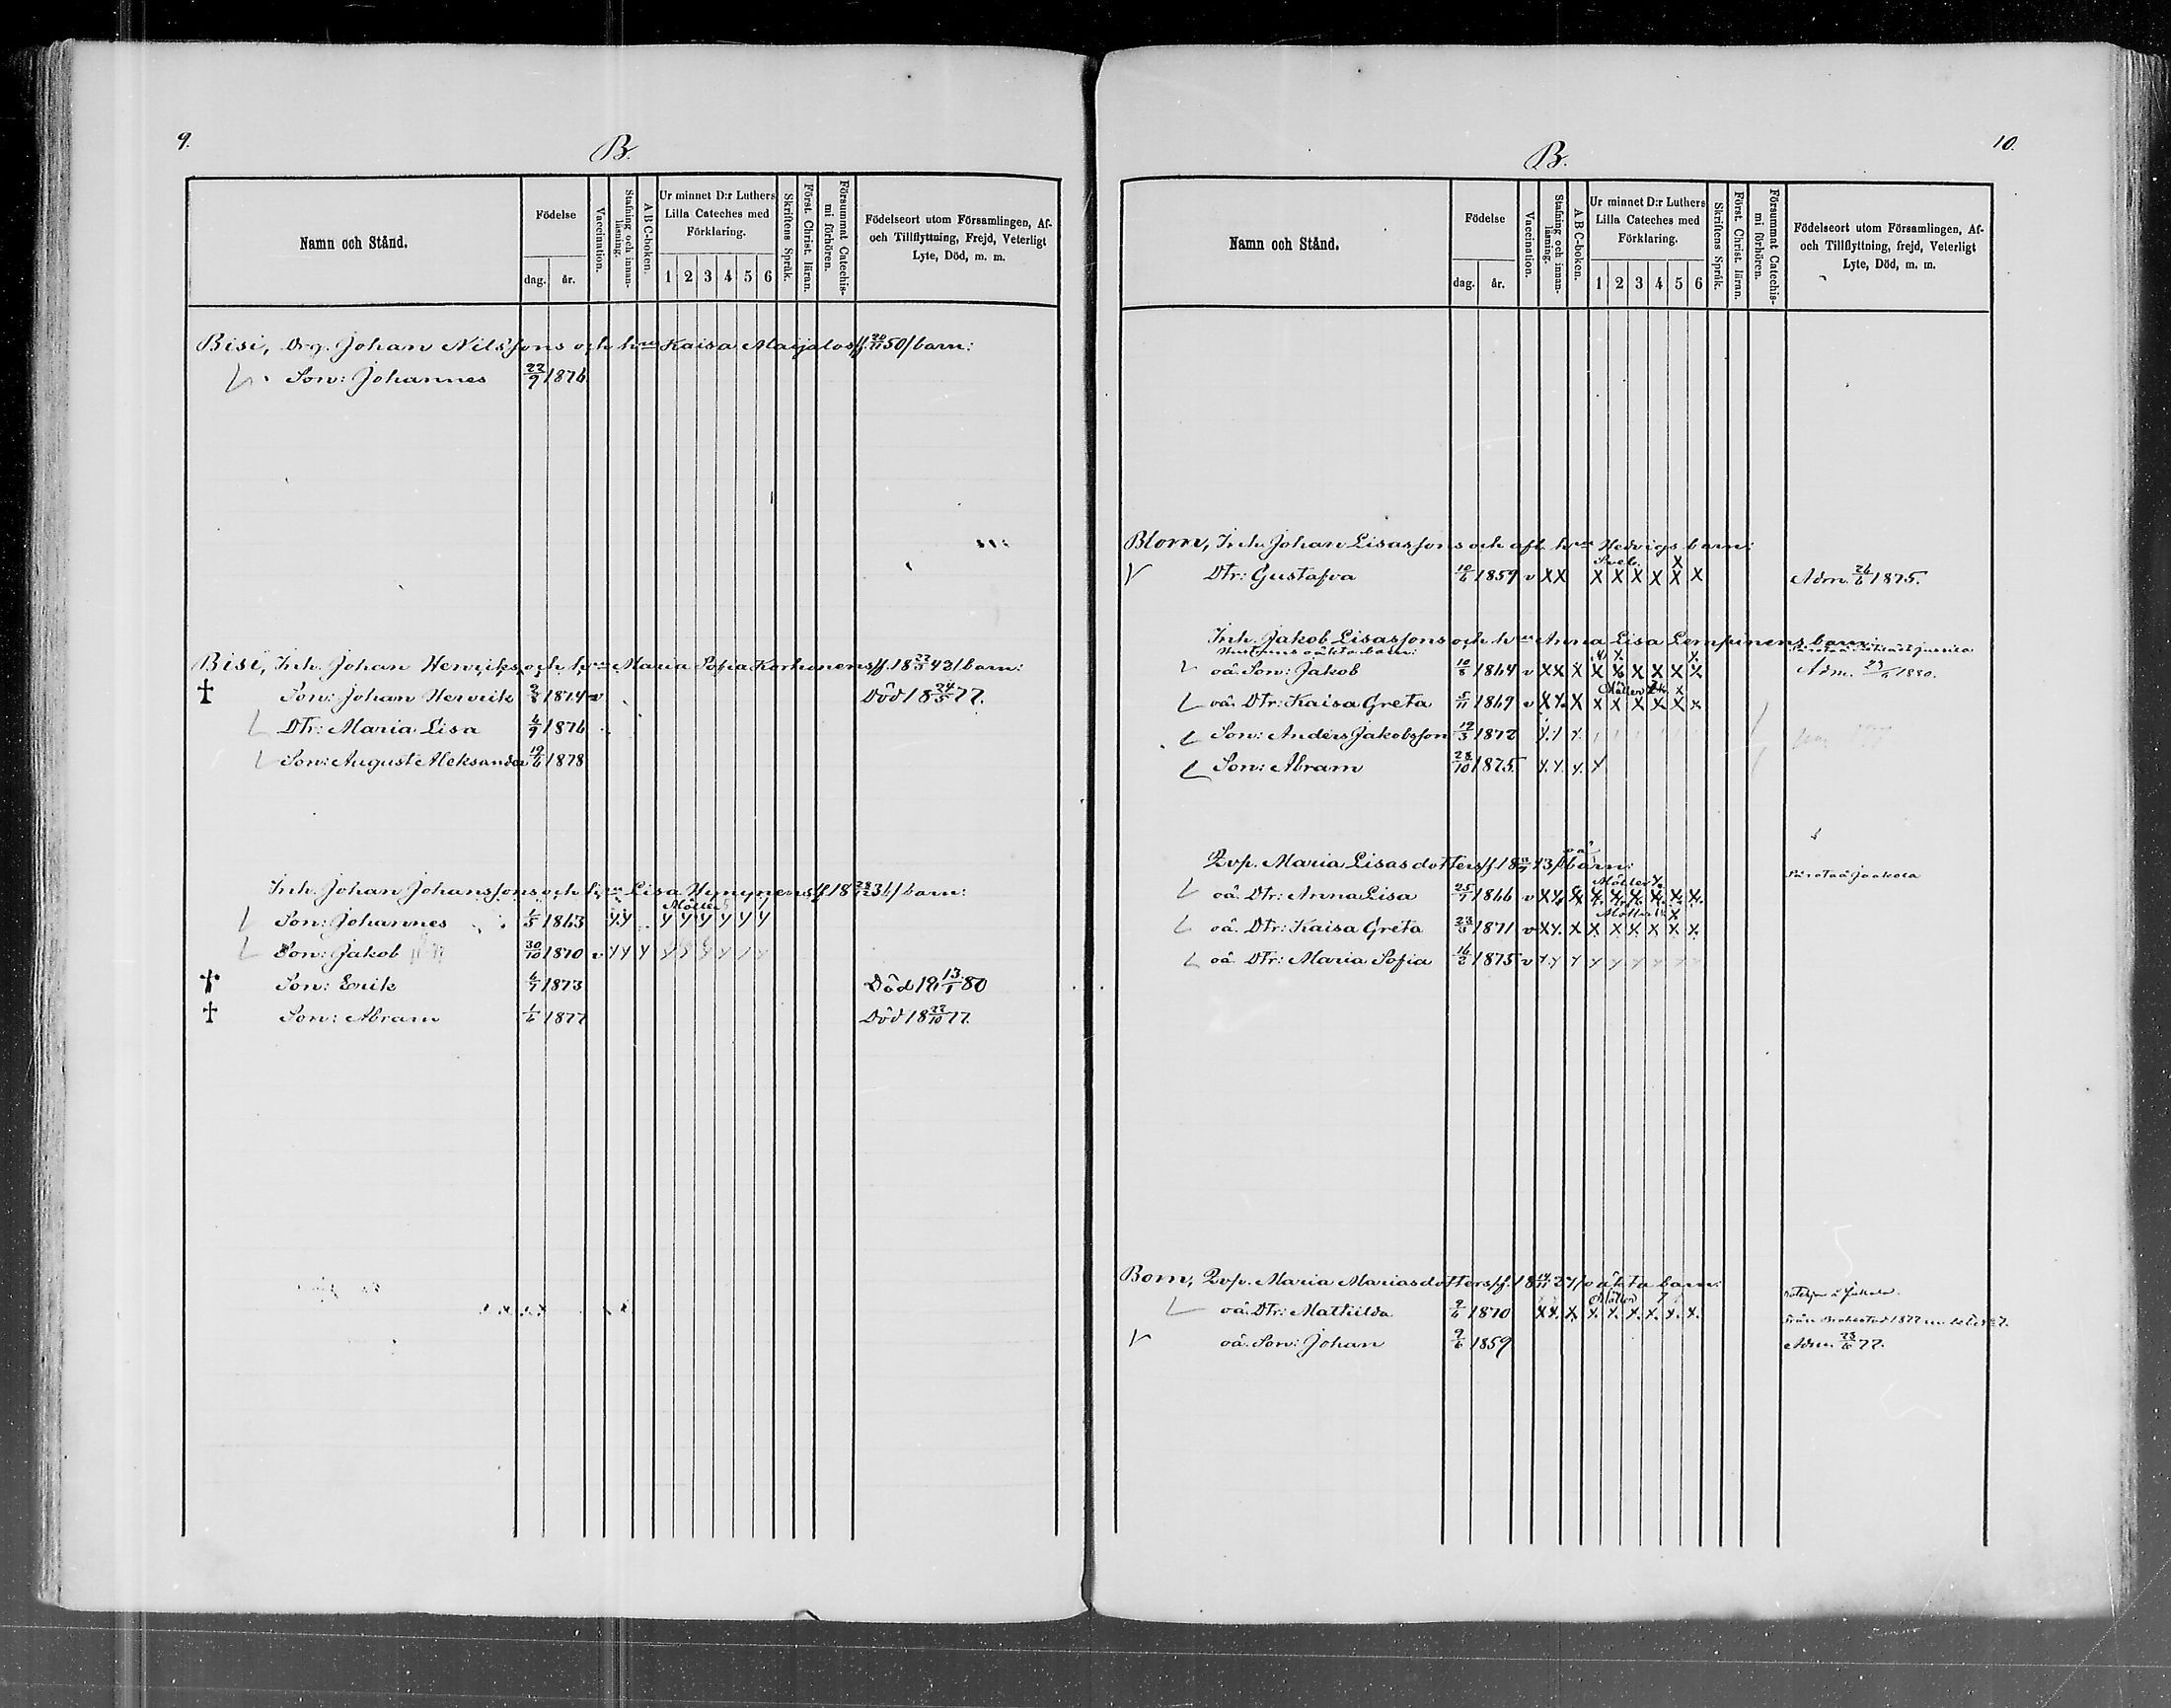 9.
B.
Namn och Stånd.
Födelse
dag.
år.
Vaccination.
Stafning och innanläsning.
A B C-boken.
Ur minnet D:r Luthers Lilla Cateches med Förklaring.
1 2 3 4 5 6
Skriftens Språk.
Först. Christ. läran.
Försummat Catechismi förhören.
Födelseort utom Församlingen, Af- och Tillflyttning, Frejd, Veterligt Lyte, Död, m. m.
Bisi, Drg. Johan Nilssons och hru Kaisa Maijalas /f. 50/ barn:
Son: Johannes 22/9 1876
Bisi, Inh. Johan Henriks och hru Maria Sofia Korhonens /f. 18 22/3 43/ barn:
† Son: Johan Henrik 1874 v Död 18 24/5 77.
Dtr: Maria Lisa 4/9 1876
Son: August Aleksander 19/6 1878
Inh. Johan Johanssons och hru Lisa Hynynens /f. 18 31/ barn:
Möller 5
Son: Johannes 1/5 1863 x x x x x x x x
Son: Jakob 30/10 1870 v x x x x x x x x x
† Son: Erik 1873 Död 18 13/1 80
† Son: Abram 1/6 1877 Död 18 27/10 77.
10.
B.
Namn och Stånd.
Födelse
dag.
år.
Vaccination.
Stafning och innanläsning.
A B C-boken.
Ur minnet D:r Luthers Lilla Cateches med Förklaring.
1 2 3 4 5 6
Skriftens Språk.
Först. Christ. läran.
Försummat Catechismi förhören.
Födelseort utom Församlingen, Af- och Tillflyttning, frejd, Veterligt Lyte, Död, m. m.
Blom, Inh. Johan Lisassons och afl. hru Hedvigs barn:
Sveb. x
Dtr: Gustafva 10/6 1859 v x x x x x x x x Adm. 26/6 1875.
Inh. Jakob Lisassons och hru Anna Lisa Lempinens barn:
Hustruns oäkta barn:
oä. Son: Jakob 10/8 1864 v x x x x x x x x x Adm. 1880.
Möller
oä. Dtr: Kaisa Greta 5/11 1869 v x x x x x x x x x
Son: Anders Jakobsson 19/3 1872 x x x
Son: Abram 28/10 1875 x x x x
Qvp. Maria Lisasdotters /f. 18 43/ oä barn:
Möller
oä. Dtr: Anna Lisa 1866 v x x x x x x x x x
Möller x
oä. Dtr: Kaisa Greta 1871 v x x x x x x x x x
oä. Dtr: Maria Sofia 1875 v x x x x x x x
Bom, Qvp. Maria Mariasdotters /f. 18 27/ oäkta barn:
Möller 7
oä. Dtr: Mathilda 9/6 1870 x x x x x x x x x Från Brahestad 1877
oä. Son: Johan 9/6 1859 Adm. 23/6 77.